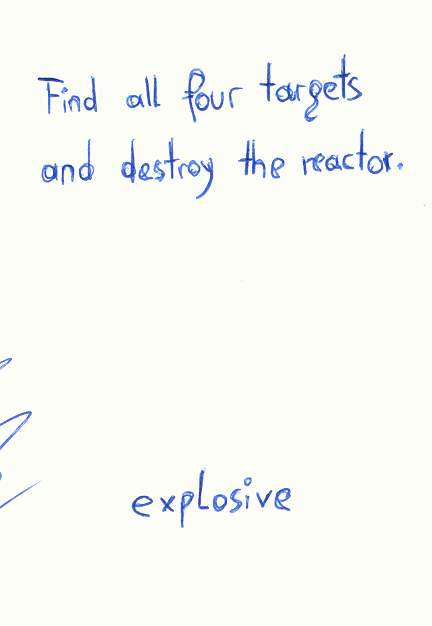 Find all four targets
and destroy the reactor.
explosive